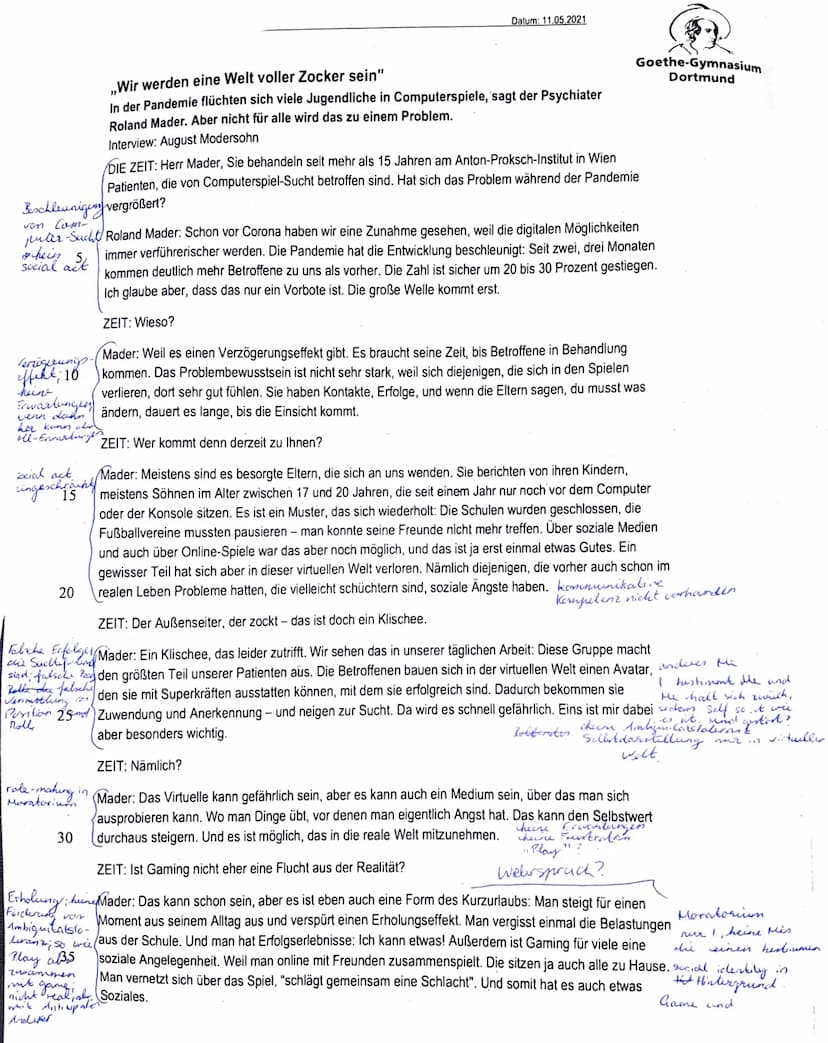 Datum: 11.05.2021
Goethe-Gymnasium
Dortmund
„Wir werden eine Welt voller Zocker sein"
In der Pandemie flüchten sich viele Jugendliche in Computerspiele, sagt der Psychiater
Roland Mader. Aber nicht für alle wird das zu einem Problem.
Interview: August Modersohn
DIE ZEIT: Herr Mader, Sie behandeln seit mehr als 15 Jahren am Anton-Proksch-Institut in Wien
Patienten, die von Computerspiel-Sucht betroffen sind. Hat sich das Problem während der Pandemie
vergrößert?
Beschleunigung
von Com-
puter-Sucht
kein
social act
Roland Mader: Schon vor Corona haben wir eine Zunahme gesehen, weil die digitalen Möglichkeiten
5 immer verführerischer werden. Die Pandemie hat die Entwicklung beschleunigt: Seit zwei, drei Monaten
kommen deutlich mehr Betroffene zu uns als vorher. Die Zahl ist sicher um 20 bis 30 Prozent gestiegen.
Ich glaube aber, dass das nur ein Vorbote ist. Die große Welle kommt erst.
ZEIT: Wieso?
Verzögerungs-
effekt;
keine
Erwartungen
wenn dann
Mader: Weil es einen Verzögerungseffekt gibt. Es braucht seine Zeit, bis Betroffene in Behandlung
10 kommen. Das Problembewusstsein ist nicht sehr stark, weil sich diejenigen, die sich in den Spielen
verlieren, dort sehr gut fühlen. Sie haben Kontakte, Erfolge, und wenn die Eltern sagen, du musst was
ändern, dauert es lange, bis die Einsicht kommt.
ZEIT: Wer kommt denn derzeit zu Ihnen?
social act
eingeschränkt
Mader: Meistens sind es besorgte Eltern, die sich an uns wenden. Sie berichten von ihren Kindern,
15 meistens Söhnen im Alter zwischen 17 und 20 Jahren, die seit einem Jahr nur noch vor dem Computer
oder der Konsole sitzen. Es ist ein Muster, das sich wiederholt: Die Schulen wurden geschlossen, die
Fußballvereine mussten pausieren – man konnte seine Freunde nicht mehr treffen. Über soziale Medien
und auch über Online-Spiele war das aber noch möglich, und das ist ja erst einmal etwas Gutes. Ein
gewisser Teil hat sich aber in dieser virtuellen Welt verloren. Nämlich diejenigen, die vorher auch schon im
20 realen Leben Probleme hatten, die vielleicht schüchtern sind, soziale Ängste haben.
kommunikative
Kompetenz nicht vorhanden
ZEIT: Der Außenseiter, der zockt – das ist doch ein Klischee.
falsche Erfolge,
die Sucht
sind; falsche
falsche
Vermittlung
Position und
Rolle
Mader: Ein Klischee, das leider zutrifft. Wir sehen das in unserer täglichen Arbeit: Diese Gruppe macht
den größten Teil unserer Patienten aus. Die Betroffenen bauen sich in der virtuellen Welt einen Avatar,
den sie mit Superkräften ausstatten können, mit dem sie erfolgreich sind. Dadurch bekommen sie
25 Zuwendung und Anerkennung – und neigen zur Sucht. Da wird es schnell gefährlich. Eins ist mir dabei
aber besonders wichtig.
anderes Me
I bestimmt Me und
Me hält sich zurück,
keine Ambiguitätstoleranz
Selbstdarstellung nur in virtueller
Welt.
ZEIT: Nämlich?
role-making im
Moratorium
Mader: Das Virtuelle kann gefährlich sein, aber es kann auch ein Medium sein, über das man sich
ausprobieren kann. Wo man Dinge übt, vor denen man eigentlich Angst hat. Das kann den Selbstwert
30 durchaus steigern. Und es ist möglich, das in die reale Welt mitzunehmen.
keine Erwartungen
keine Frustration
"Play"?
ZEIT: Ist Gaming nicht eher eine Flucht aus der Realität?
Erholung; keine
Förderung von
Ambiguitätsto-
leranz; so wie
Play als
zusammen
mit game;
nicht real,
mit
Mader: Das kann schon sein, aber es ist eben auch eine Form des Kurzurlaubs: Man steigt für einen
Moment aus seinem Alltag aus und verspürt einen Erholungseffekt. Man vergisst einmal die Belastungen
aus der Schule. Und man hat Erfolgserlebnisse: Ich kann etwas! Außerdem ist Gaming für viele eine
35 soziale Angelegenheit. Weil man online mit Freunden zusammenspielt. Die sitzen ja auch alle zu Hause.
Man vernetzt sich über das Spiel, "schlägt gemeinsam eine Schlacht". Und somit hat es auch etwas
Soziales.
Moratorium
nur I, keine Me's
die einen bestimmen
social identity im
Hintergrund
Game und